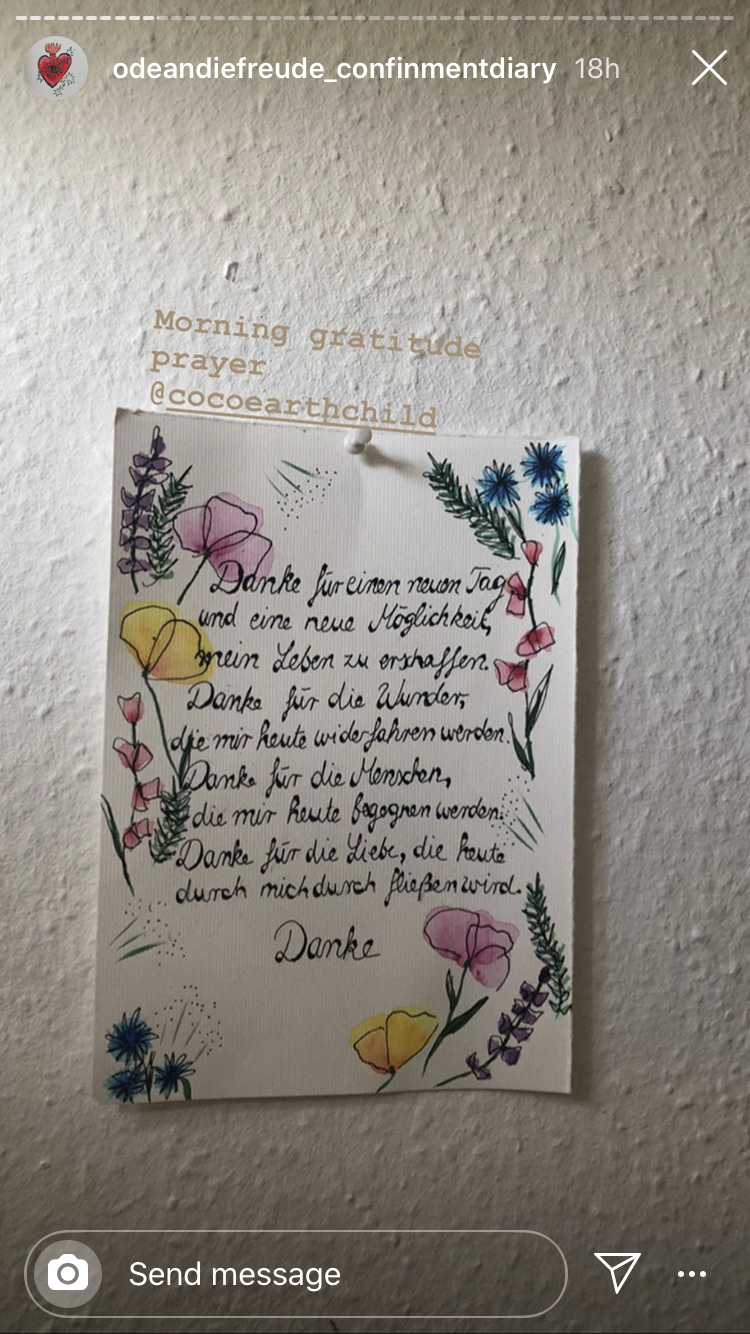 odeandiefreude_confinmentdiary 18h
Morning gratitude
prayer
@cocoearthchild
Danke für einen neuen Tag
und eine neue Möglichkeit,
mein Leben zu erschaffen.
Danke für die Wunder,
die mir heute widerfahren werden.
Danke für die Menschen,
die mir heute begegnen werden.
Danke für die Liebe, die heute
durch mich durch fließen wird.
Danke
Send message